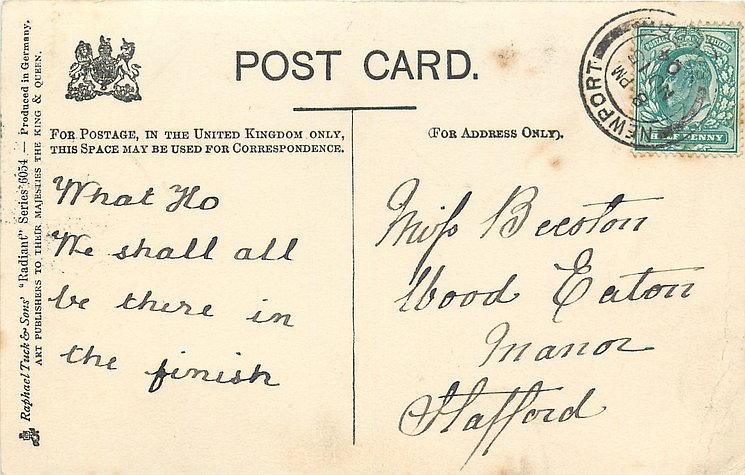 POST CARD.
FOR POSTAGE, IN THE UNITED KINGDOM ONLY,
THIS SPACE MAY BE USED FOR CORRESPONDENCE.
(FOR ADDRESS ONLY).
What Ho
We shall all
be there in
the finish
Miss Beeston
Wood Eaton
Manor
Stafford
NEWPORT
8 PM
HALF PENNY
Raphael Tuck & Sons' "Radiant" Series 6054 — Produced in Germany.
ART PUBLISHERS TO THEIR MAJESTIES THE KING & QUEEN.